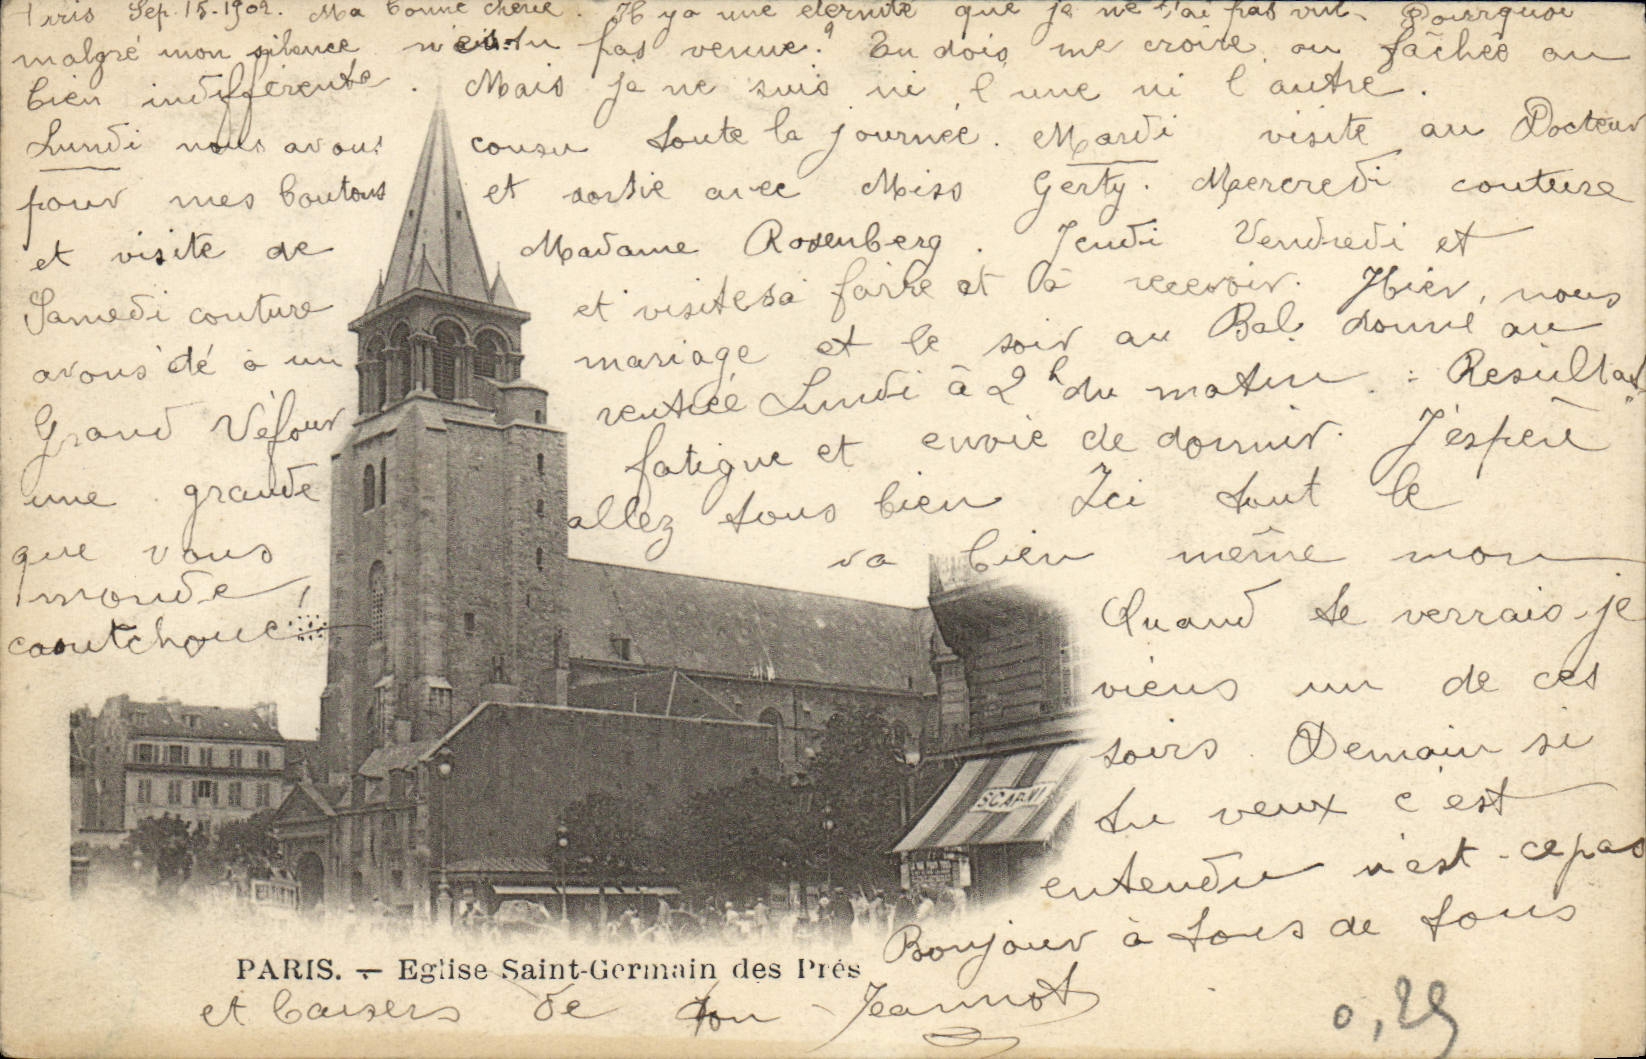 Paris Sep. 15-1902. Ma bonne chérie. Il y a une éternité que je ne t'ai pas vue. Pourquoi
malgré mon silence n'es-tu pas venue? Tu dois me croire ou fâchée ou
bien indifférente. Mais je ne suis ni l'une ni l'autre.
Lundi nous avons cousu toute la journée. Mardi visite au Docteur
pour mes boutons et sortie avec Miss Gerty. Mercredi couture
et visite de Madame Rosenberg. Jeudi Vendredi et
Samedi couture et visites à faire et à recevoir. Hier, nous
avons été à un mariage et le soir au Bal donné au
Grand Véfour rentrée Lundi à 2h du matin. : Résultat
une grande fatigue et envie de dormir. J'espère
que vous allez tous bien Ici tout le
monde va bien même mon
caoutchouc
Quand te verrais-je
viens un de ces
soirs. Demain si
tu veux c'est
entendu n'est-ce pas
Bonjour à tous de tous
PARIS. — Eglise Saint-Germain des Prés
et baisers de ton Jeannot
0,25